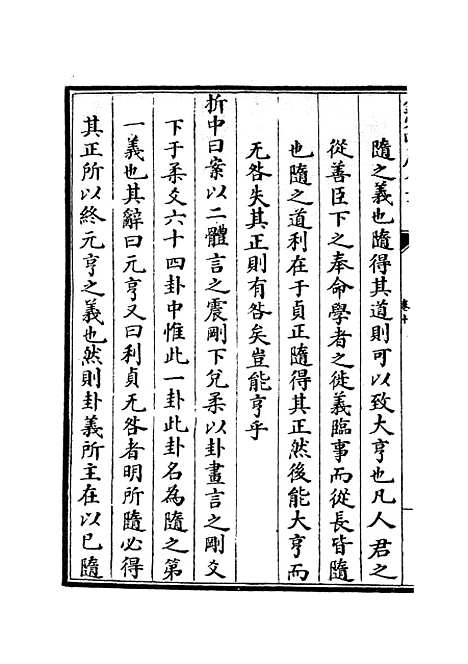 隨之義也隨得其道則可以致大亨也凡人君之
從善臣下之奉命學者之徙義臨事而從長皆隨
也隨之道利在于貞正隨得其正然後能大亨而
无咎失其正則有咎矣豈能亨乎
折中曰案以二體言之震剛下兌柔以卦畫言之剛爻
下于柔爻六十四卦中惟此一卦此卦名為隨之第
一義也其辭曰元亨又曰利貞无咎者明所隨必得
其正所以終元亨之義也然則卦義所主在以已隨